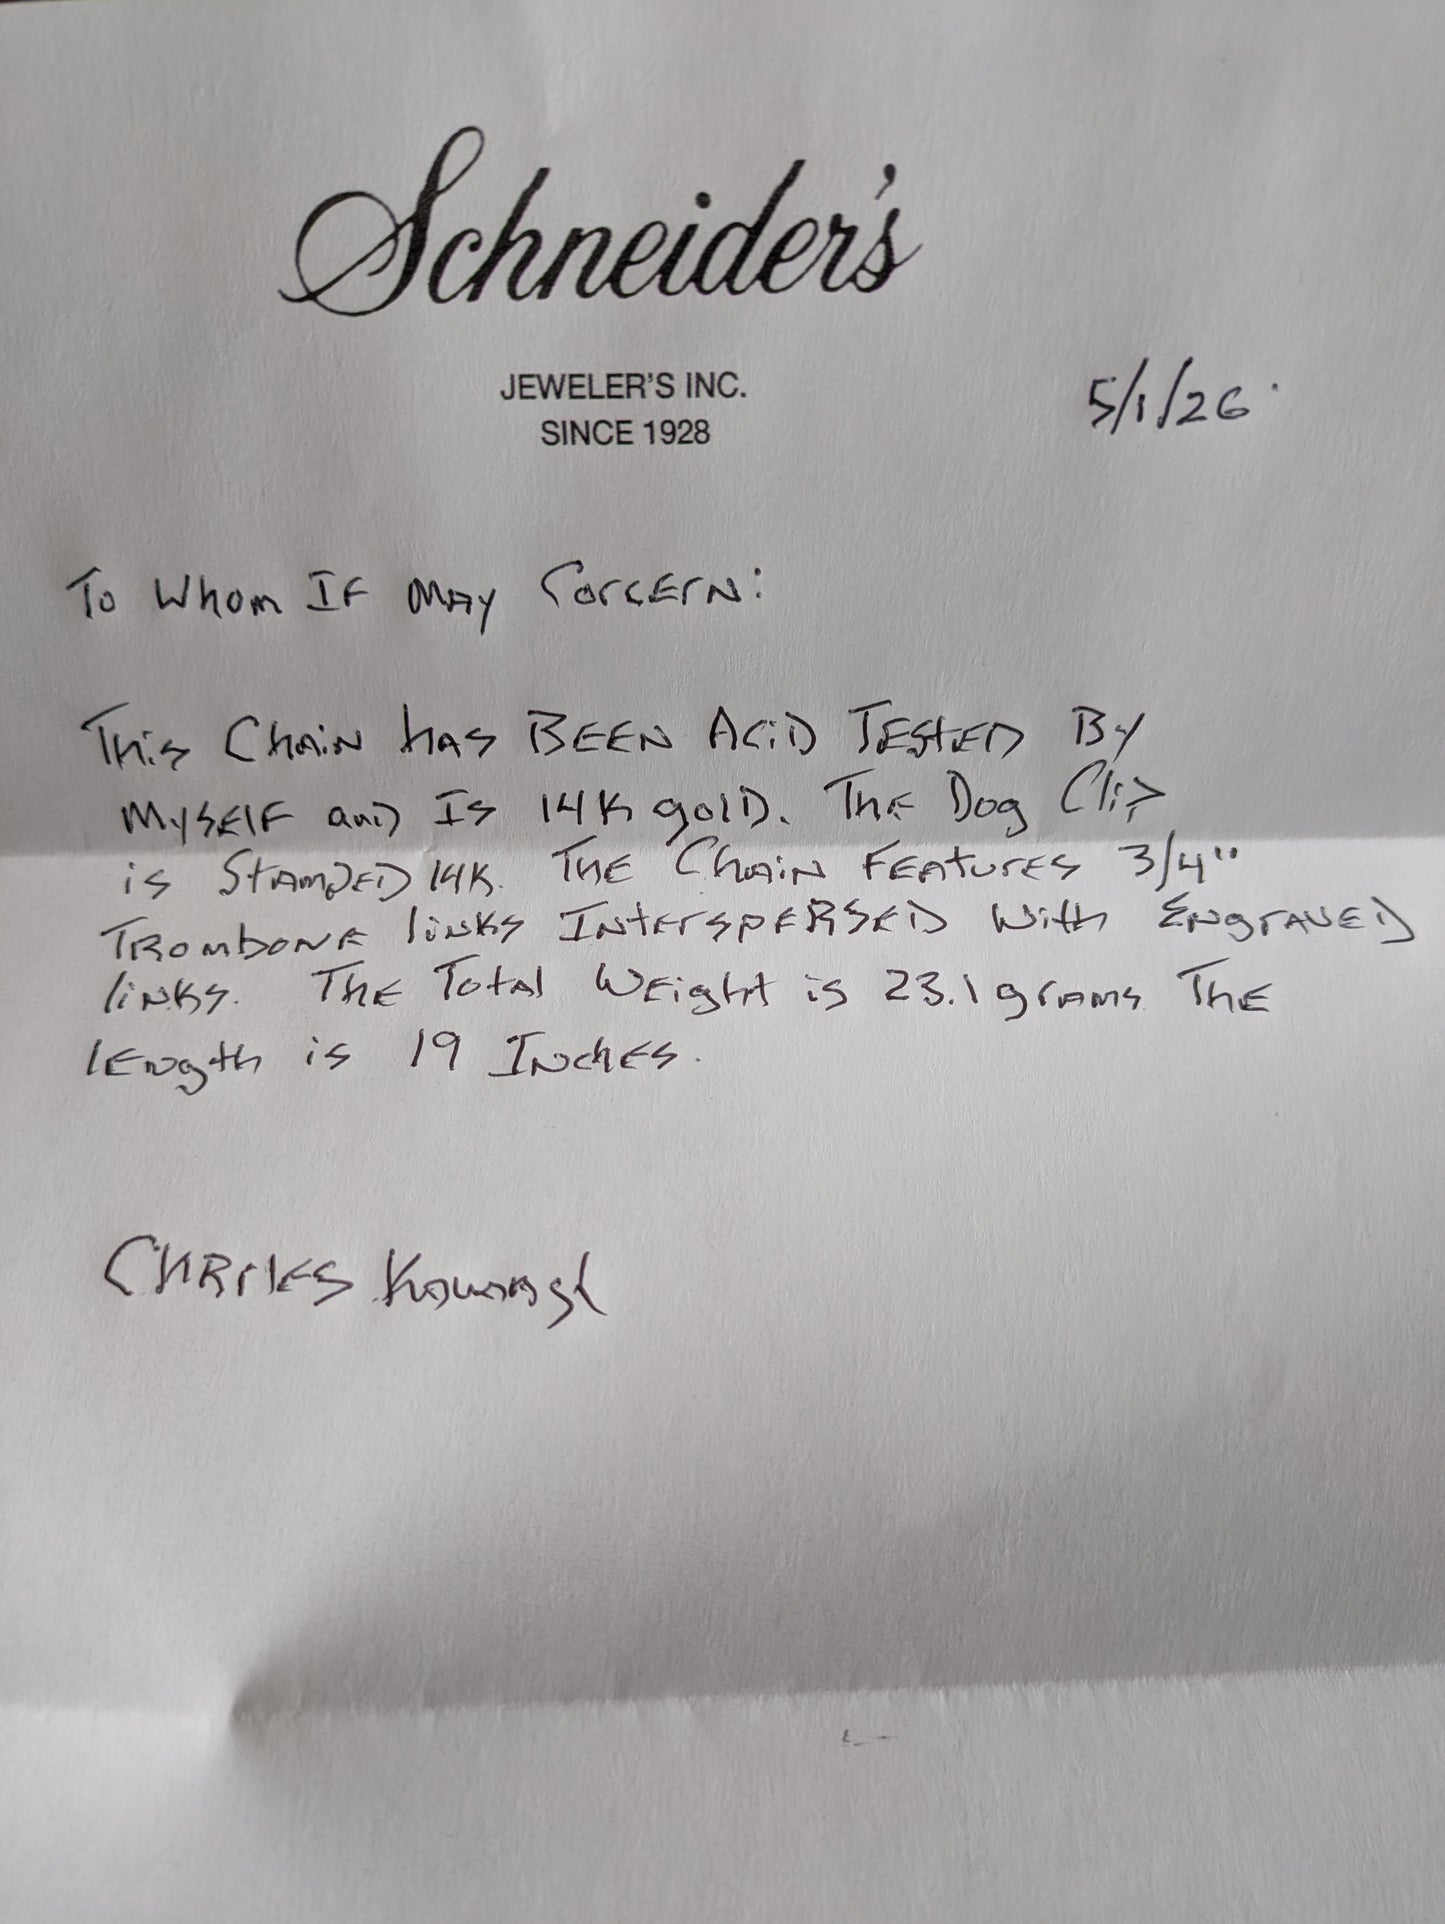 Schneider's
JEWELER'S INC.
SINCE 1928
5/1/26
To Whom It May Concern:
This Chain has BEEN Acid TESTED By
MySELF and Is 14K gold. The Dog Clip
is STAMPED 14K. THE Chain FEATURES 3/4"
TROMBONE links INTERSPERSED With ENGRAVED
links. THE Total Weight is 23.1 grams THE
lENgth is 19 INchES.
CHARLES Kavanagh